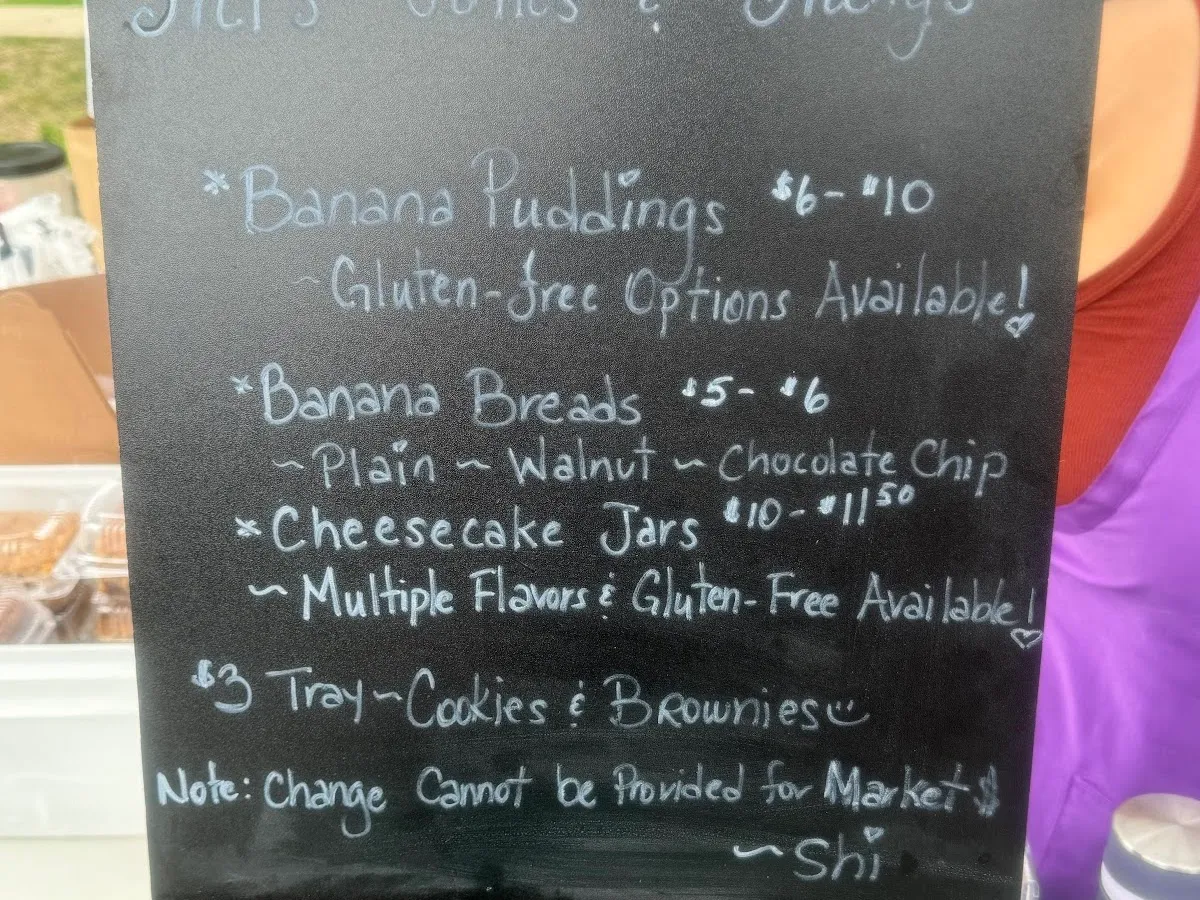 * Banana Puddings $6 - $10
~ Gluten-free Options Available!
* Banana Breads $5 - $6
~ Plain ~ Walnut ~ Chocolate Chip
* Cheesecake Jars $10 - $11 50
~ Multiple Flavors & Gluten-Free Available!
$3 Tray ~ Cookies & Brownies
Note: Change Cannot be Provided for Market $
~ Shi